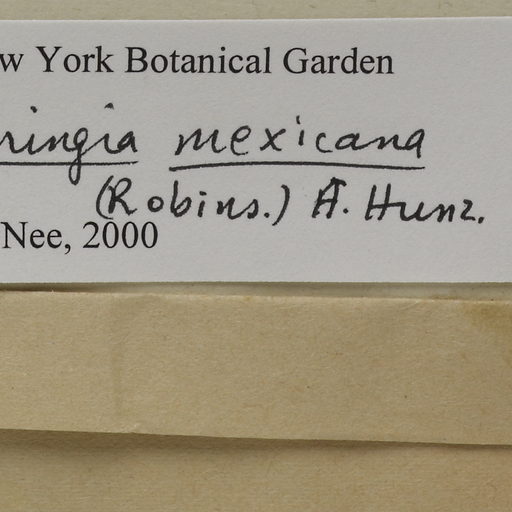 w York Botanical Garden
ringia mexicana
(Robins.) A. Hunz.
Nee, 2000